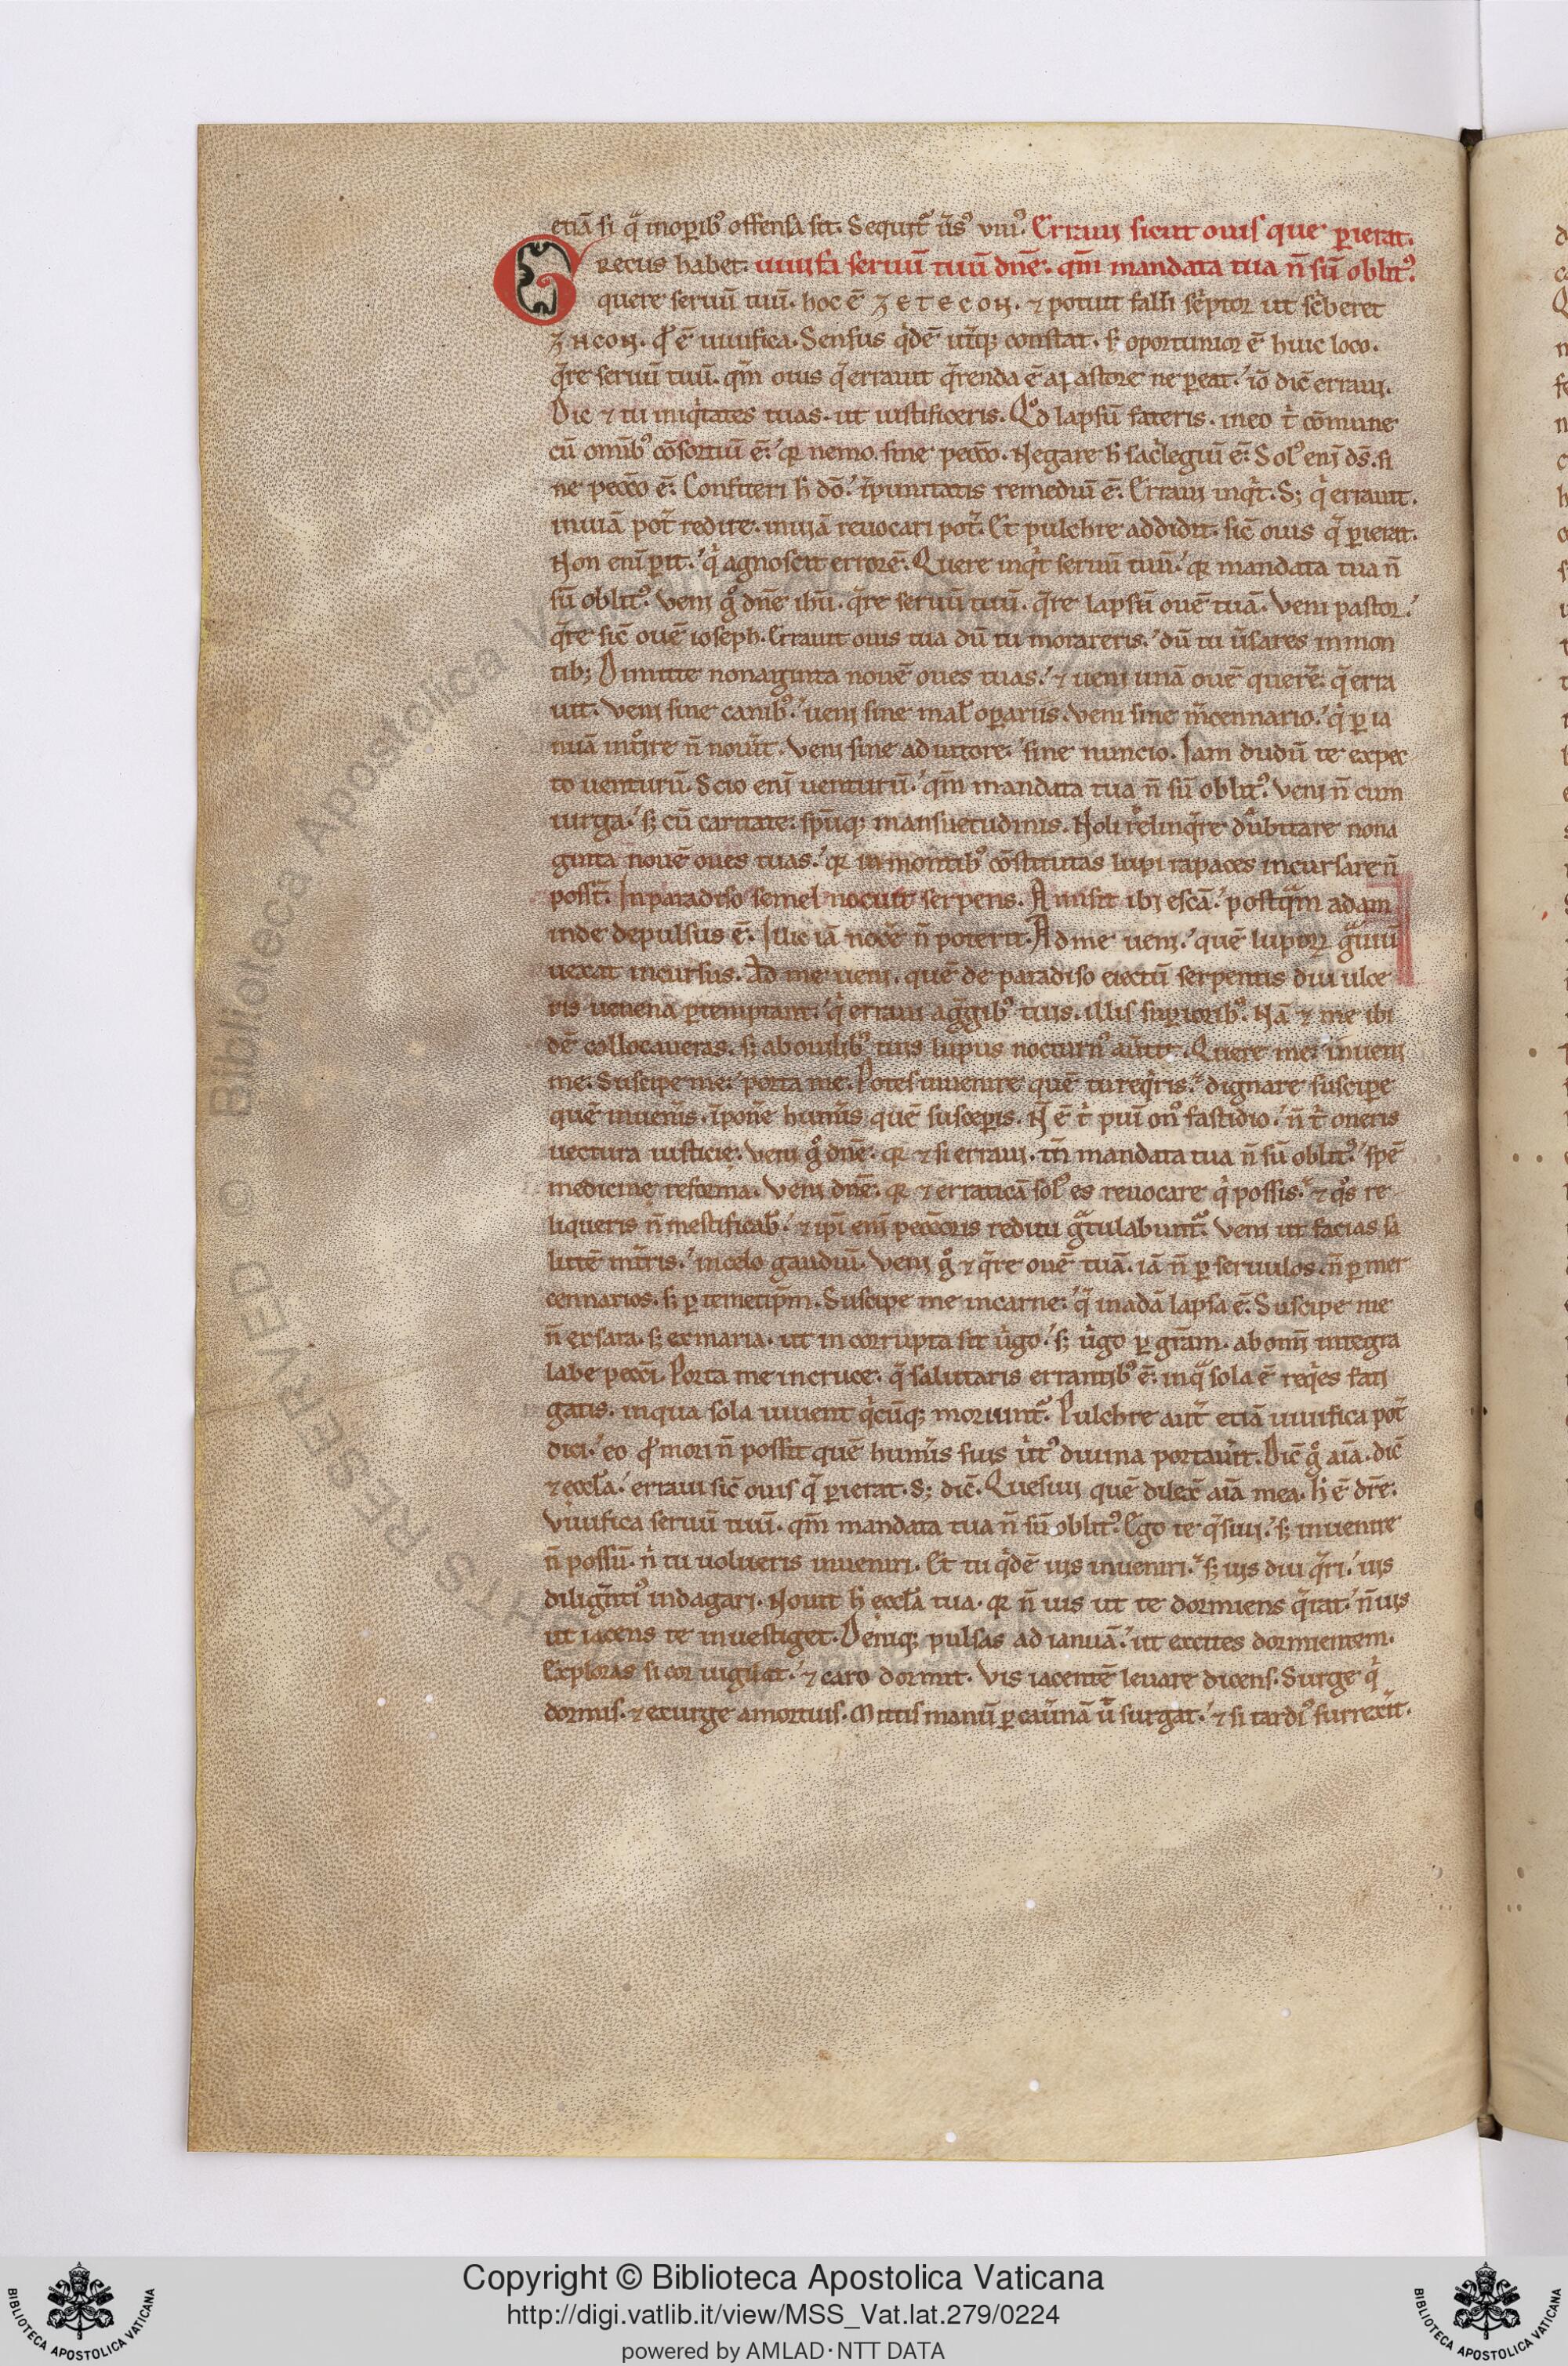 etiā si q̄ inoꝑibꝰ offensa sit. Sequit᷑ ūsꝰ viiiꝰ. Erraui sicut ouis que ꝑierat.
Grecus habet. uiuifa seruū tuū dnē. qm̄ mandata tua n̄ sū oblitꝰ.
quere seruū tuū. hoc ē ZETECON. ⁊ potuit falli sc̓ptor ut sc̓beret
ZHCON. qđ ē uiuifica. Sensus q̓dē utq̓ꝫ constat. sꝫ oportunior ē huic loco.
q̄re seruū tuū. qm̄ ouis q̄ errauit q̄renda ē a pastore ne ꝑeat. iō dic̄ erraui.
Dic ⁊ tu iniq̓tates tuas. ut iustificeris. Qd̓ lapsū fateris. in eo t̓ cōmune
cū omībꝰ cōsortiū ē. qꝛ nemo sine pecc̄o. Negare h̄ sac̓legiū ē. Solꝰ eni ds̄. si
ne pecc̄o ē. Confiteri h̄ dō. īpunitatis remediū ē. Erraui inq̓t. Sꝫ q̓ errauit.
in uiā pot̄ redire. in uiā reuocari pot̄. Et pulchre addidit. sic̄ ouis q̄ ꝑierat.
Non enī ꝑit. q̓ agnoscit errorē. Quere inq̓t seruū tuū. qꝛ mandata tua n̄
sū oblitꝰ. Veni g̊ dnē ihū. q̄re seruū tuū. q̄re lapsū ouē tuā. Veni pastor.
q̄re sic̄ ouē ioseph. Errauit ouis tua dū tu morareris. dū tu ūsares in mon
tibꝫ Dimitte nonaginta nouē oues tuas. ⁊ ueni unā ouē querē. q̄ erra
uit. Veni sine canibꝰ. ueni sine mal̄ oꝑariis. Veni sine m̄cennario. q̓ ꝑ ia
nuā int̊ire n̄ nouit̄. Veni sine adiutore. sine nuncio. Iam dudū te expec
to uenturū. Scio eni uenturū. qm̄ mandata tua n̄ sū oblitꝰ. Veni n̄ cum
uirga. sꝫ cū caritate. spūqꝫ mansuetudinis. Noli relinq̄re dubitare nona
ginta nouē oues tuas. qꝛ in montibꝰ cōstitutas lupi rapaces incursare n̄
posst̄. In paradiso semel nocuit serpens. Amisit ibi escā. postq̄m adam
inde depulsus ē. Illic iā nocē n̄ poterit. Ad me ueni. quē lupoꝝ g̃uiū
uexat incursus. Ad me ueni. quē de paradiso eiectū serpentis diu ulce
ris uenena ꝑtemptant. q̓ erraui a g̃gibꝰ tuis. illis suꝑioribꝰ. Nā ⁊ me ibi
dē collocaueras. sꝫ ab ouilibꝰ tuis lupus nocturnꝰ aūtit. Quere me. inueni
me. Suscipe me. porta me. Potes inuenire quē tu req̓ris. dignare suscipe
quē inueneris. īponē humīs quē susceꝑis. N̄ ē t̓ piū onꝰ fastidio. n̄ t̓ oneris
uectura iusticie. Veni g̊ dnē. qꝛ ⁊ si erraui. tn̄ mandata tua n̄ sū oblitꝰ. spē
medicinę reseruā. Veni dnē. qꝛ ⁊ erraticā solꝰ es reuocare q̓ possis. ⁊ q̊s re
liqueris n̄ mestificab̄. ⁊ ip̄i eni peccc̄oris reditu g̃tulabunt᷑. Veni ut facias sa
lutē in t̄ris. in celo gaudiū. Veni g̊ ⁊ q̄re ouē tuā. iā n̄ ꝑ seruulos. n̄ ꝑ mer
cennarios. sꝫ ꝑ temetip̄m. Suscipe me in carne. q̄ in adā lapsa ē. Suscipe me
n̄ ex sara. sꝫ ex maria. ut incorrupta sit ūgo. sꝫ ūgo ꝑ gr̄am. ab omī integra
labe pecc̄i. Porta me in cruce. q̄ salutaris errantibꝰ ē. in q̃ sola ē req̓es fati
gatis. in qua sola uiuent q̓cūqꝫ moriunt᷑. Pulchre aut̄ etiā uiuifica pot̄
dici. eo qđ mori n̄ possit quē humīs suis ūtꝰ diuina portau̓it. Dic̄ g̊ aīa. dic̄
⁊ eccl̄a. erraui sic̄ ouis q̄ ꝑierat. Sꝫ dic̄. Quesiui quē dilex̄ aīa mea. h̄ ē dr̄e.
Viuifica seruū tuū. qm̄ mandata tua n̄ sū oblitꝰ. Ego te q̄siui. sꝫ inuenire
n̄ possū. n̓ tu uolueris inueniri. Et tu q̓dē uis inueniri. sꝫ uis diu q̄ri. uis
diliḡntiꝰ indagari. Nouit h̄ eccl̄a tua. qꝛ n̄ uis ut te dormiens q̄rat. n̄ uis
ut iacens te inuestiget. Deniqꝫ pulsas ad ianuā. ut excites dormientem.
Exploras si cor uigilat. ⁊ caro dormit. Vis iacentē leuare dicens. Surge q̓
dormis. ⁊ exurge a mortuis. Mittis manū ꝑ cau̓nā ū surgat. ⁊ si tardiꝰ surrexit̄.
Copyright © Biblioteca Apostolica Vaticana
http://digi.vatlib.it/view/MSS_Vat.lat.279/0224
powered by AMLAD·NTT DATA